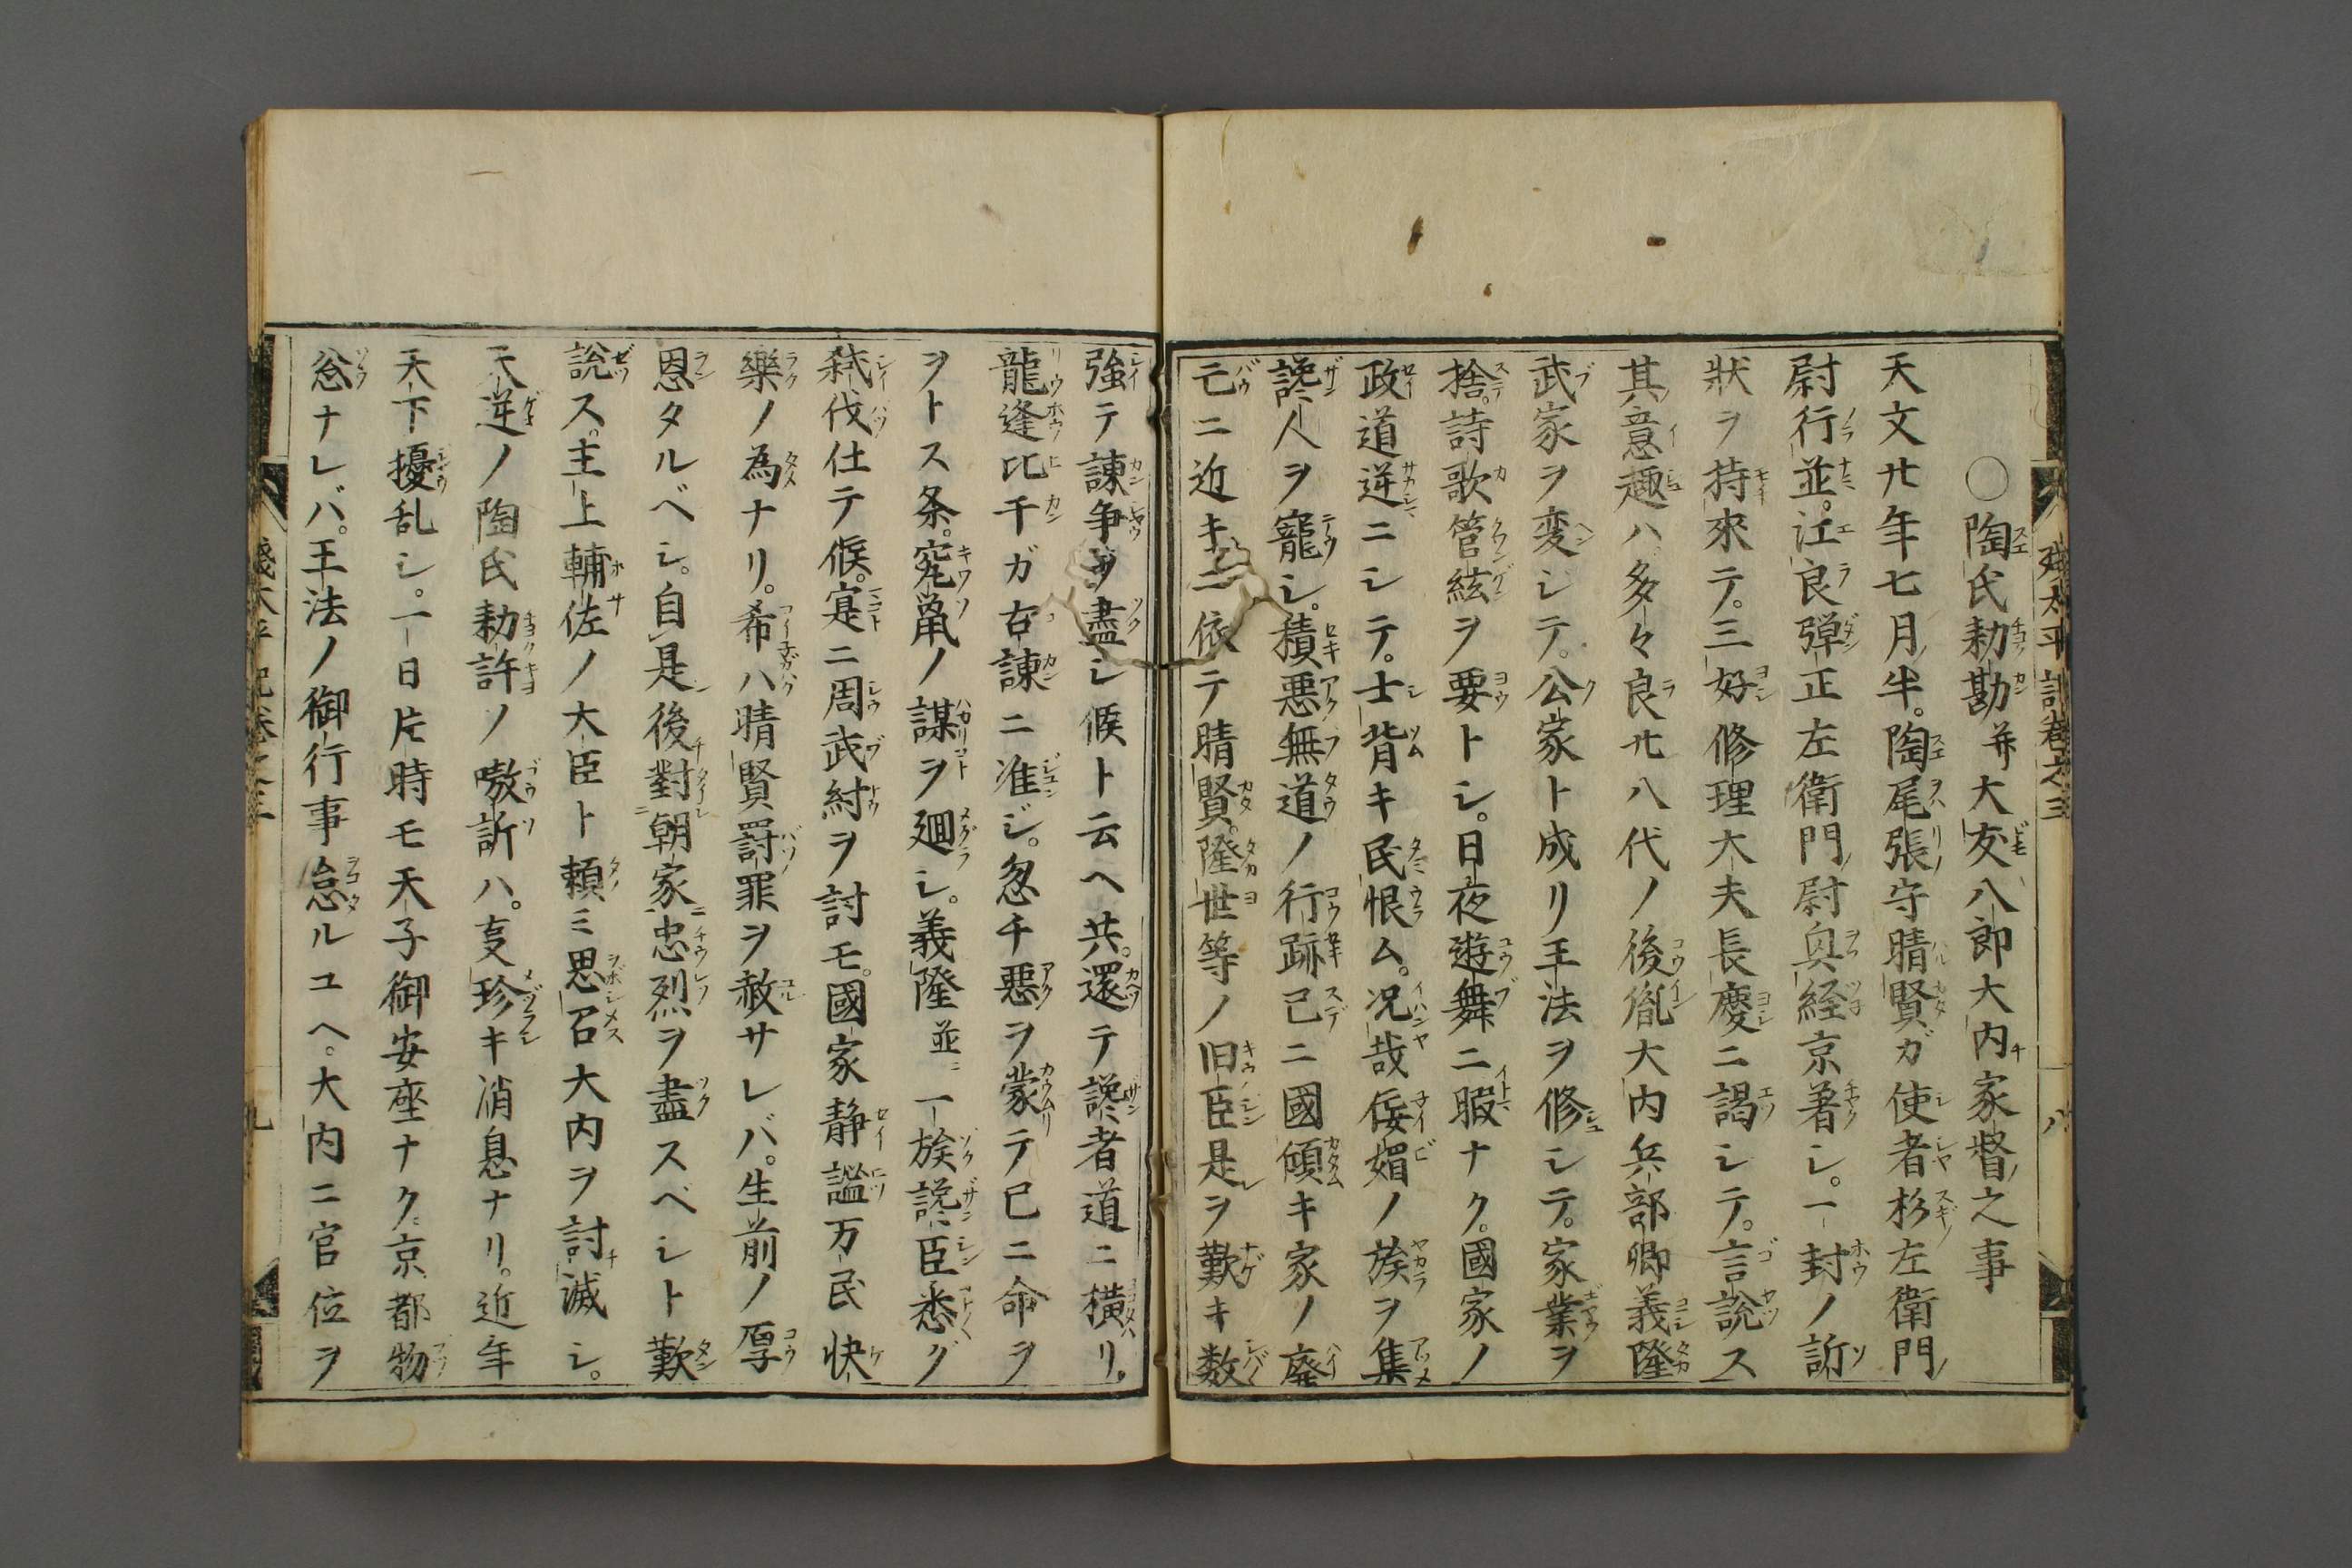 残太平記巻之三
八
〇陶氏勅勘并大友八郎大内家督之事
天文廿年七月半。陶尾張守晴賢ガ使者杉左衛門
尉行並。江良弾正左衛門尉奥経京着シ。一封ノ訴
状ヲ持来テ。三好修理大夫長慶ニ謁シテ。言説ス
其意趣ハ多々良廿八代ノ後胤大内兵部卿義隆
武家ヲ変ジテ。公家ト成リ王法ヲ修シテ。家業ヲ
捨。詩歌管絃ヲ要トシ。日夜遊舞ニ暇ナク。國家ノ
政道逆ニシテ。士背キ民恨ム。况哉佞媚ノ族ヲ集
讒人ヲ寵シ。積悪無道ノ行跡已ニ國傾キ家ノ廃
亡ニ近キニ依テ晴賢。隆世等ノ旧臣是ヲ歎キ数
強テ諌争ヲ盡シ候ト云ヘ共。還テ讒者道ニ横リ。
龍逢比干ガ古諌ニ准ジ。忽チ惡ヲ蒙テ已ニ命ヲ
ヲトス条。窮鼠ノ謀ヲ廻シ。義隆並ニ一族讒臣悉グ
弑伐仕テ候。寔ニ周武紂ヲ討モ。國家静謐万民快
樂ノ為ナリ。希ハ晴賢罰罪ヲ赦サレバ。生前ノ厚
恩タルベシ。自是後對朝家忠烈ヲ盡スベシト歎
説ス。主上輔佐ノ大臣ト頼ミ思召大内ヲ討滅シ。
天逆ノ陶氏勅許ノ嗷訴ハ。亥珍キ消息ナリ。近年
天下擾乱シ。一日片時モ天子御安座ナク。京都物
忩ナレバ。王法ノ御行事怠ルユヘ。大内ニ官位ヲ
残太平記巻之三
九